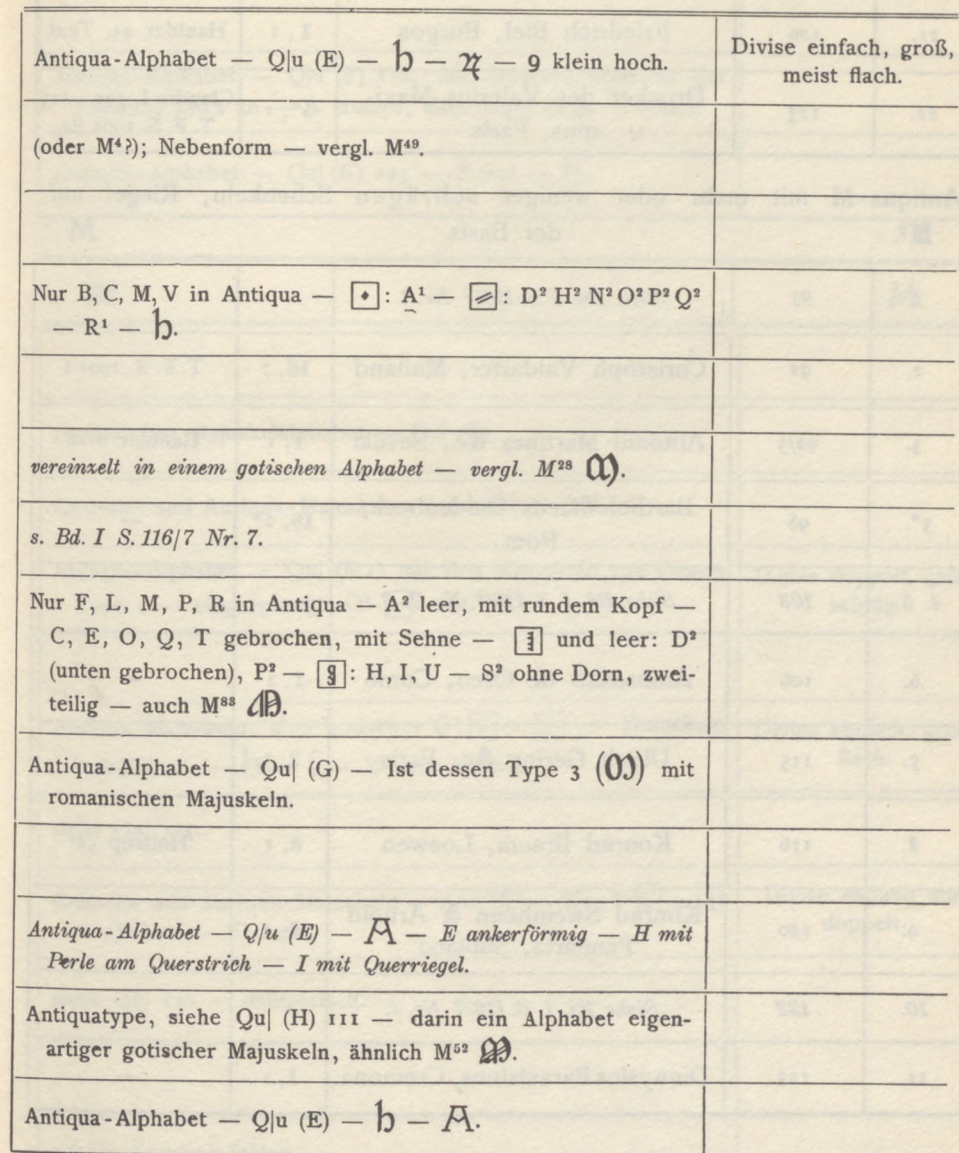 Antiqua-Alphabet — Q|u (E) — h — — 9 klein hoch.
Divise einfach, groß,
meist flach.
(oder M⁴?); Nebenform — vergl. M⁴⁹.
Nur B, C, M, V in Antiqua — : A¹ — : D² H² N² O² P² Q²
— R¹ — h.
vereinzelt in einem gotischen Alphabet — vergl. M²⁸ M.
s. Bd. I S. 116/7 Nr. 7.
Nur F, L, M, P, R in Antiqua — A² leer, mit rundem Kopf —
C, E, O, Q, T gebrochen, mit Sehne — und leer: D²
(unten gebrochen), P² — : H, I, U — S² ohne Dorn, zwei-
teilig — auch M⁸³ M.
Antiqua-Alphabet — Qu| (G) — Ist dessen Type 3 (M) mit
romanischen Majuskeln.
Antiqua-Alphabet — Q/u (E) — A — E ankerförmig — H mit
Perle am Querstrich — I mit Querriegel.
Antiquatype, siehe Qu| (H) 111 — darin ein Alphabet eigen-
artiger gotischer Majuskeln, ähnlich M⁵² M.
Antiqua-Alphabet — Q|u (E) — h — A.